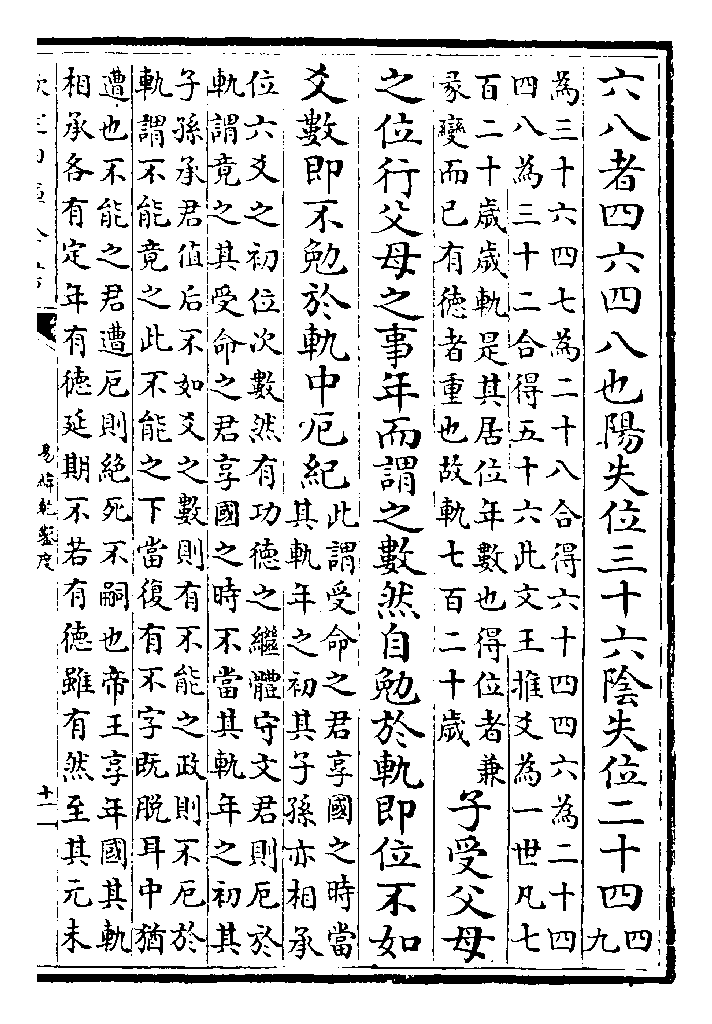 六八者四六四八也陽失位三十六陰失位二十四四
九
為三十六四七為二十八合得六十四四六為二十四
四八為三十二合得五十六此文王推爻為一世凡七
百二十歲歲軌是其居位年數也得位者兼
彖變而已有德者重也故軌七百二十歲
子受父母
之位行父母之事年而謂之數然自勉於軌即位不如
爻數即不勉於軌中厄紀
此謂受命之君享國之時當
其軌年之初其子孫亦相承
位六爻之初位次數然有功德之繼體守文君則厄於
軌謂竟之其受命之君享國之時不當其軌年之初其
子孫承君值后不如爻之數則有不能之政則不厄於
軌謂不能竟之此不能之下當復有不字既脫耳中猶
遭也不能之君遭厄則絕死不嗣也帝王享年國其軌
相承各有定年有德延期不若有德雖有然至其元未
易緯乾鑿度